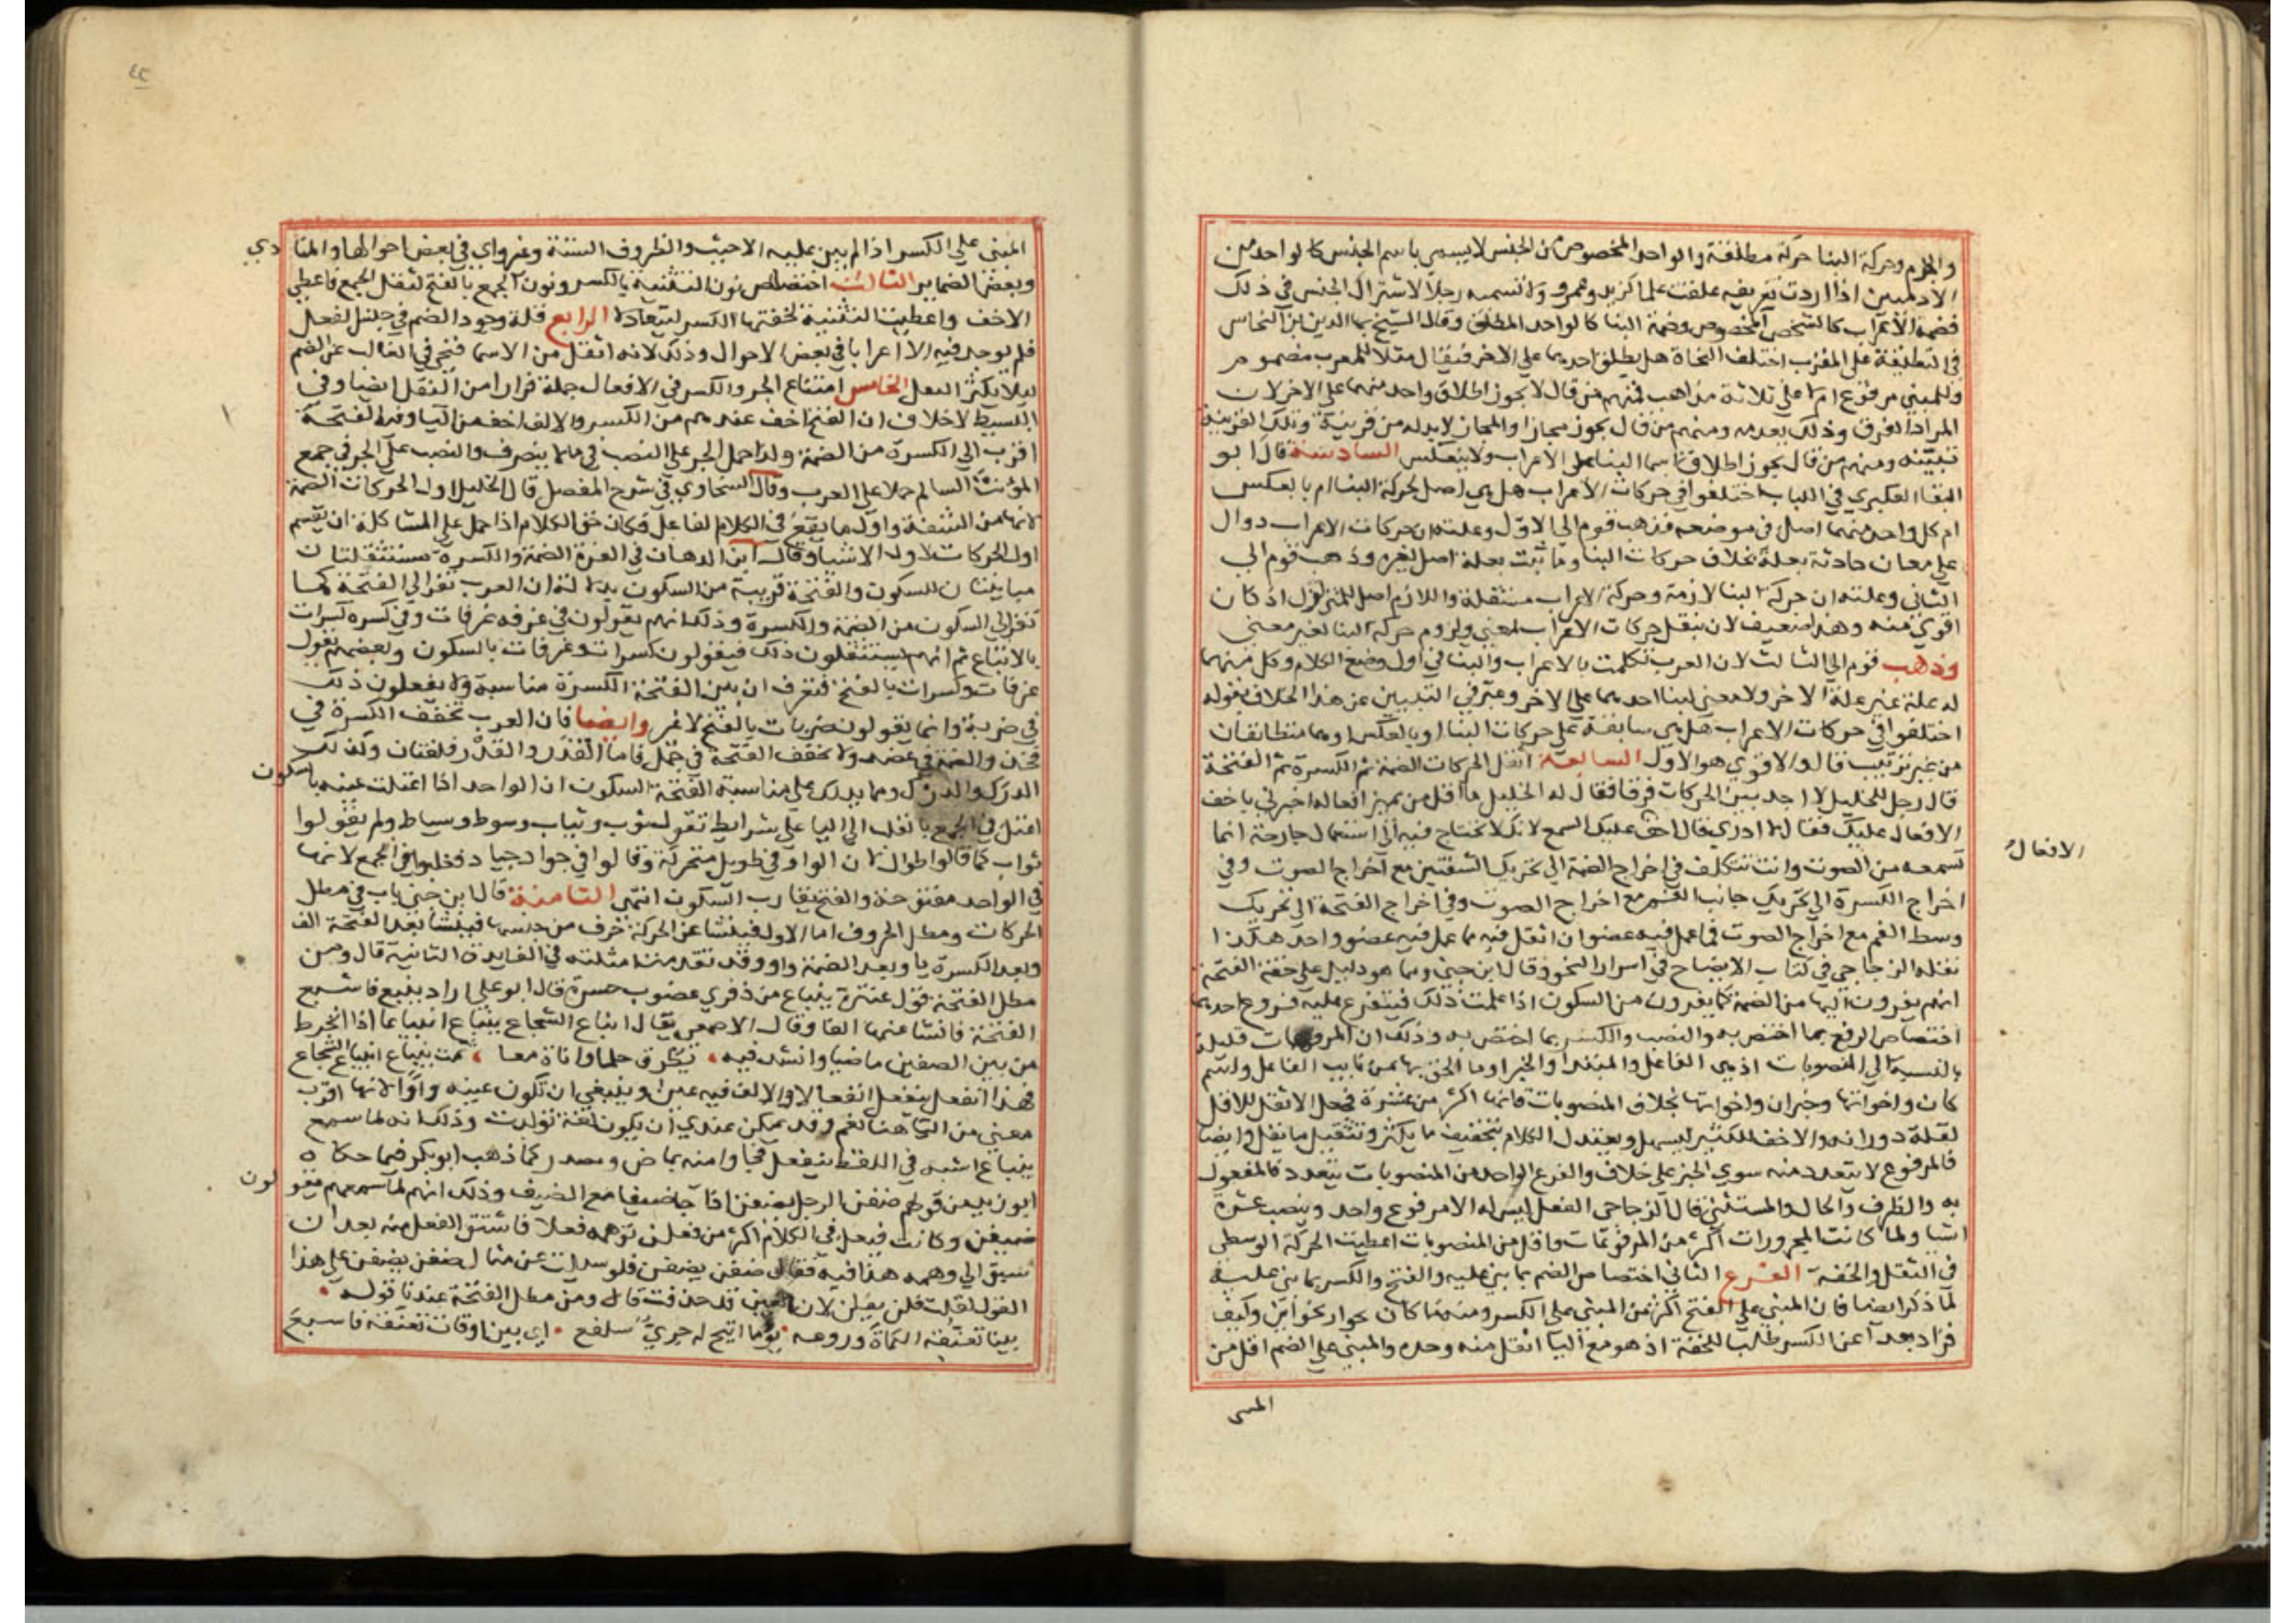 والجزم وحركة البنا حركة مطلقة والواحد المخصوص من الجنس لايسمى باسم الجنس كالواحد من
الادميين اذا اردت تعريفه علقت علما كزيد وعمرو ولا تسميه رجلا لاشتراك الجنس في ذلك
فضمة الاعراب كالشخص المخصوص وضمة البنا كالواحد المطلق وقال الشيخ بها الدين بن النحاس
في التعليقة على المقرب اختلف النحاة هل يطلق احدهما على الاخر فيقال مثلا للمعرب مضموم
وللمبني مرفوع ام لا على ثلاثة مذاهب فمنهم من قال لا يجوز اطلاق واحد منهما على الاخر لان
المراد الفرق وذلك يعدمه ومنهم من قال يجوز مجازا والمجاز لابد له من قرينة وتلك القرينة
تبينه ومنهم من قال يجوز اطلاق اسما البنا على الاعراب ولا ينعكس السادسة قال ابو
البقا العكبري في اللباب اختلفوا في حركات الاعراب هل هي اصل لحركة البنا ام بالعكس
ام كل واحد منهما اصل في موضعه فذهب قوم الى الاول وعلته ان حركات الاعراب دوال
على معان حادثة بعلة بخلاف حركات البنا وما ثبت بعلة اصل لغيره وذهب قوم الى
الثاني وعلته ان حركة البنا لازمة وحركة الاعراب منتقلة واللازم اصل للمتزلزل اذ كان
اقوى منه وهذا ضعيف لان تنقل حركات الاعراب لمعنى ولزوم حركة البنا لغير معنى
وذهب قوم الى الثالث لان العرب تكلمت بالاعراب والبنا في اول وضع الكلام وكل منهما
له علة غير علة الاخر ولا معنى لبنا احدهما على الاخر وعبر في التبيين عن هذا الخلاف بقوله
اختلفوا في حركات الاعراب هل هي سابقة على حركات البنا او بالعكس او هما متطابقان
من غير ترتيب قال والاقوى هو الاول السابعة اثقل الحركات الضمة ثم الكسرة ثم الفتحة
قال رجل للخليل لا اجد بين الحركات فرقا فقال له الخليل ما اقل من يميز افعاله اخبرني باخف
الافعال عليك فقال لا ادري قال اخف عليك السمع لانك لا تحتاج فيه الى استعمال جارحة انما
الافعال
تسمعه من الصوت وانت تتكلف في اخراج الضمة الى تحريك الشفتين مع اخراج الصوت وفي
اخراج الكسرة الى تحريك جانب الفم مع اخراج الصوت وفي اخراج الفتحة الى تحريك
وسط الفم مع اخراج الصوت فما عمل فيه عضوان اثقل فيه مما عمل فيه عضو واحد هكذا
نقله الزجاجي في كتاب الايضاح في اسرار النحو وقال ابن جني ومما هو دليل على خفة الفتحة
انهم يفرون اليها من الضمة كما يفرون من السكون اذا علمت ذلك فيتفرع عليه فروع احدها
اختصاص الرفع بما اختص به والنصب والكسر بما اختص به وذلك ان المرفوعات قليلة
بالنسبة الى المنصوبات اذ هي الفاعل والمبتدا والخبر وما الحق بها من نايب الفاعل واسم
كان واخواتها وخبر ان واخواتها بخلاف المنصوبات فانها اكثر من عشرة فجعل الاثقل للاقل
لقلة دورانه والاخف للكثير ليسهل ويعتدل الكلام بتخفيف ما يكثر وتثقيل ما يقل وايضا
فالمرفوع لا يتعدد منه سوى الخبر على خلاف والفرع الواحد من المنصوبات يتعدد كالمفعول
به والظرف والحال والمستثنى قال الزجاجي الفعل ليس له الا مرفوع واحد وينصب عشرة
اشيا ولما كانت المجرورات اكثر من المرفوعات واقل من المنصوبات اعطيت الحركة الوسطى
في الثقل والخفة الفرع الثاني اختصاص الضم بما بني عليه والفتح والكسر بما بني عليه
لما ذكر ايضا فان المبني على الفتح اكثر من المبني على الكسر ومنه ما كان بجوار نحو اين وكيف
فرار بعد آ عن الكسر طلبا للخفة اذ هو مع اليا اثقل منه وحده والمبني على الضم اقل من
المبنى
٤٢
المبنى على الكسر اذا لم يبن عليه الا حيث والظروف الستة وغير واي في بعض احوالها والمنا
دي
وبعض الضماير الثالث اختصاص نون التثنية بالكسر ونون الجمع بالفتح لثقل الجمع فاعطي
الاخف واعطيت التثنية لخفتها الكسر ليتعادلا الرابع قلة وجود الضم في جنس الفعل
فلم يوجد فيه الا اعرابا في بعض الاحوال وذلك لانه اثقل من الاسما فنحى في الغالب عن الضم
ليلا يكثر الثقل الخامس امتناع الجر والكسر في الافعال جملة فرارا من الثقل ايضا وفي
البسيط لاخلاف ان الفتح اخف عندهم من الكسر والالف اخف من اليا وهذا الفتحة
اقرب الى الكسرة من الضمة ولذا حمل الجر على النصب في ما لا ينصرف والنصب على الجر في جمع
المؤنث السالم حملا على العرب وقال السخاوي في شرح المفصل قال الخليل اول الحركات الضمة
لانها من الشفة واول ما يقع في الكلام الفاعل فكان حق الكلام اذا حمل على المشاكلة ان يقسم
اول الحركات لاول الاشيا وقال ابن الدهان في الغرة الضمة والكسرة مستثقلتان
مباينتان للسكون والفتحة قريبة من السكون بدلالة ان العرب تفر الى الفتحة كما
تفر الى السكون من الضمة والكسرة وذلك انهم يقولون في غرفه غرفات وفي كسره كسرات
بالاتباع ثم انهم يستثقلون ذلك فيقولون كسرات وغرفات بالسكون وبعضهم يقول
غرفات وكسرات بالفتح فتعرف ان بين الفتحة الكسرة مناسبة ولا يفعلون ذلك
في ضربة وانما يقولون ضربات بالفتح لا غير وايضا فان العرب تخفف الكسرة في
فخذ والضمة في عضد ولا تخفف الفتحة في جمل فاما القدر والقدر فلغتان وكذلك
الدرك والدرك ومما يدلك على مناسبة الفتحة السكون ان الواحد اذا اعتلت عينه بالسكون
اعتل في الجمع بالقلب الى اليا على شرايط تقول ثوب وثياب وسوط وسياط ولم يقولوا
ثواب كما قالوا طوال لان الواو في طويل متحركة وقالوا في جواد جياد فقلبوا في الجمع لانها
في الواحد مفتوحة والفتح يقارب السكون انتهى الثامنة قال ابن جني باب في مطل
الحركات ومطل الحروف اما الاول فينشا عن الحركة حرف من جنسها فينشا بعد الفتحة الف
وبعد الكسرة يا وبعد الضمة واو وقد تقدمت امثلته في الفايدة الثانية قال ومن
مطل الفتحة قول عنترة ينباع من ذفرى غضوب جسرة قال ابو علي اراد ينبع فاشبع
الفتحة فانشا عنها الفا وقال الاصمعي يقال انباع الشجاع ينباع انبياعا اذا انخرط
من بين الصفين ماضيا وانشد فيه يطرق حلما واناة معا ثمت ينباع انبياع الشجاع
فهذا انفعل ينفعل انفعالا والالف فيه عين وينبغي ان تكون عينه واوا لانها اقرب
معنى من اليا هنا نعم وقد يمكن عندي ان يكون لغة تولدت وذلك انه لما سمع
ينباع اشبه في اللفظ ينفعل فجاوا منه بماض ومصدر كما ذهب ابو بكر فيما حكاه
ابو زيد من قولهم ضفن الرجل يضفن اذا جا ضيفا مع الضيف وذلك انهم لما سمعهم يقو
لون
ضيفن وكانت فيعل في الكلام اكثر من فعلن توهمه فعلا فاشتق الفعل منه بعد ان
سبق الى وهمه هذا فيه فقال ضفن يضفن فلو سيلت عن مثال ضفن يضفن على هذا
القول لقلت فلن يفلن لان العين قد حذفت قال ومن مطل الفتحة عندنا قوله
بينا تعنقه الكماة وروغه يوما اتيح له جري سلفع اي بين اوقات تعنقه فاسبع